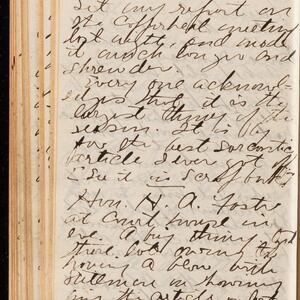 Set my report on
the Copperhead meeting
last night, and made
it much longer and
shrewder.
Every one acknowl-
edges that it is the
largest thing of the
season. It is by
far the best sarcastic
article I ever got off
See it in Scrapbook
Hon. H. A. Foster
at Court house in
eve. A big thing
there but owing to
having a
on
the article